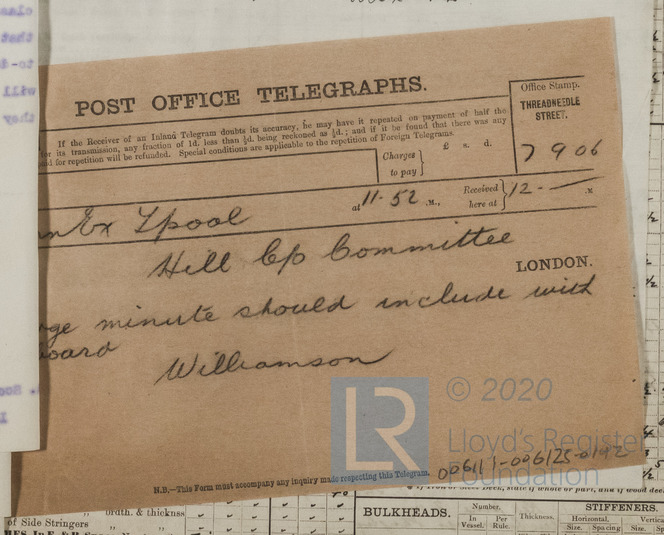 POST OFFICE TELEGRAPHS.
If the Receiver of an Inland Telegram doubts its accuracy, he may have it repeated on payment of half the
for its transmission, any fraction of 1d. less than ½d. being reckoned as ½d.; and if it be found that there was any
and for repetition will be refunded. Special conditions are applicable to the repetition of Foreign Telegrams.
Office Stamp.
THREADNEEDLE
STREET.
7 9 06
Charges
to pay
£ s. d.
Ex Lpool
at 11.52 .M.,
Received
here at
12 - .M
Hill Cp Committee
LONDON.
minute should include with
Williamson
LR
© 2020
Lloyd's Register
Foundation
006111-006125-0192
N.B.—This Form must accompany any inquiry made respecting this Telegram.
BULKHEADS.
Number.
In Vessel.
Per Rule.
Thickness.
STIFFENERS.
Horizontal.
Size. Spacing
Size.
of Side Stringers